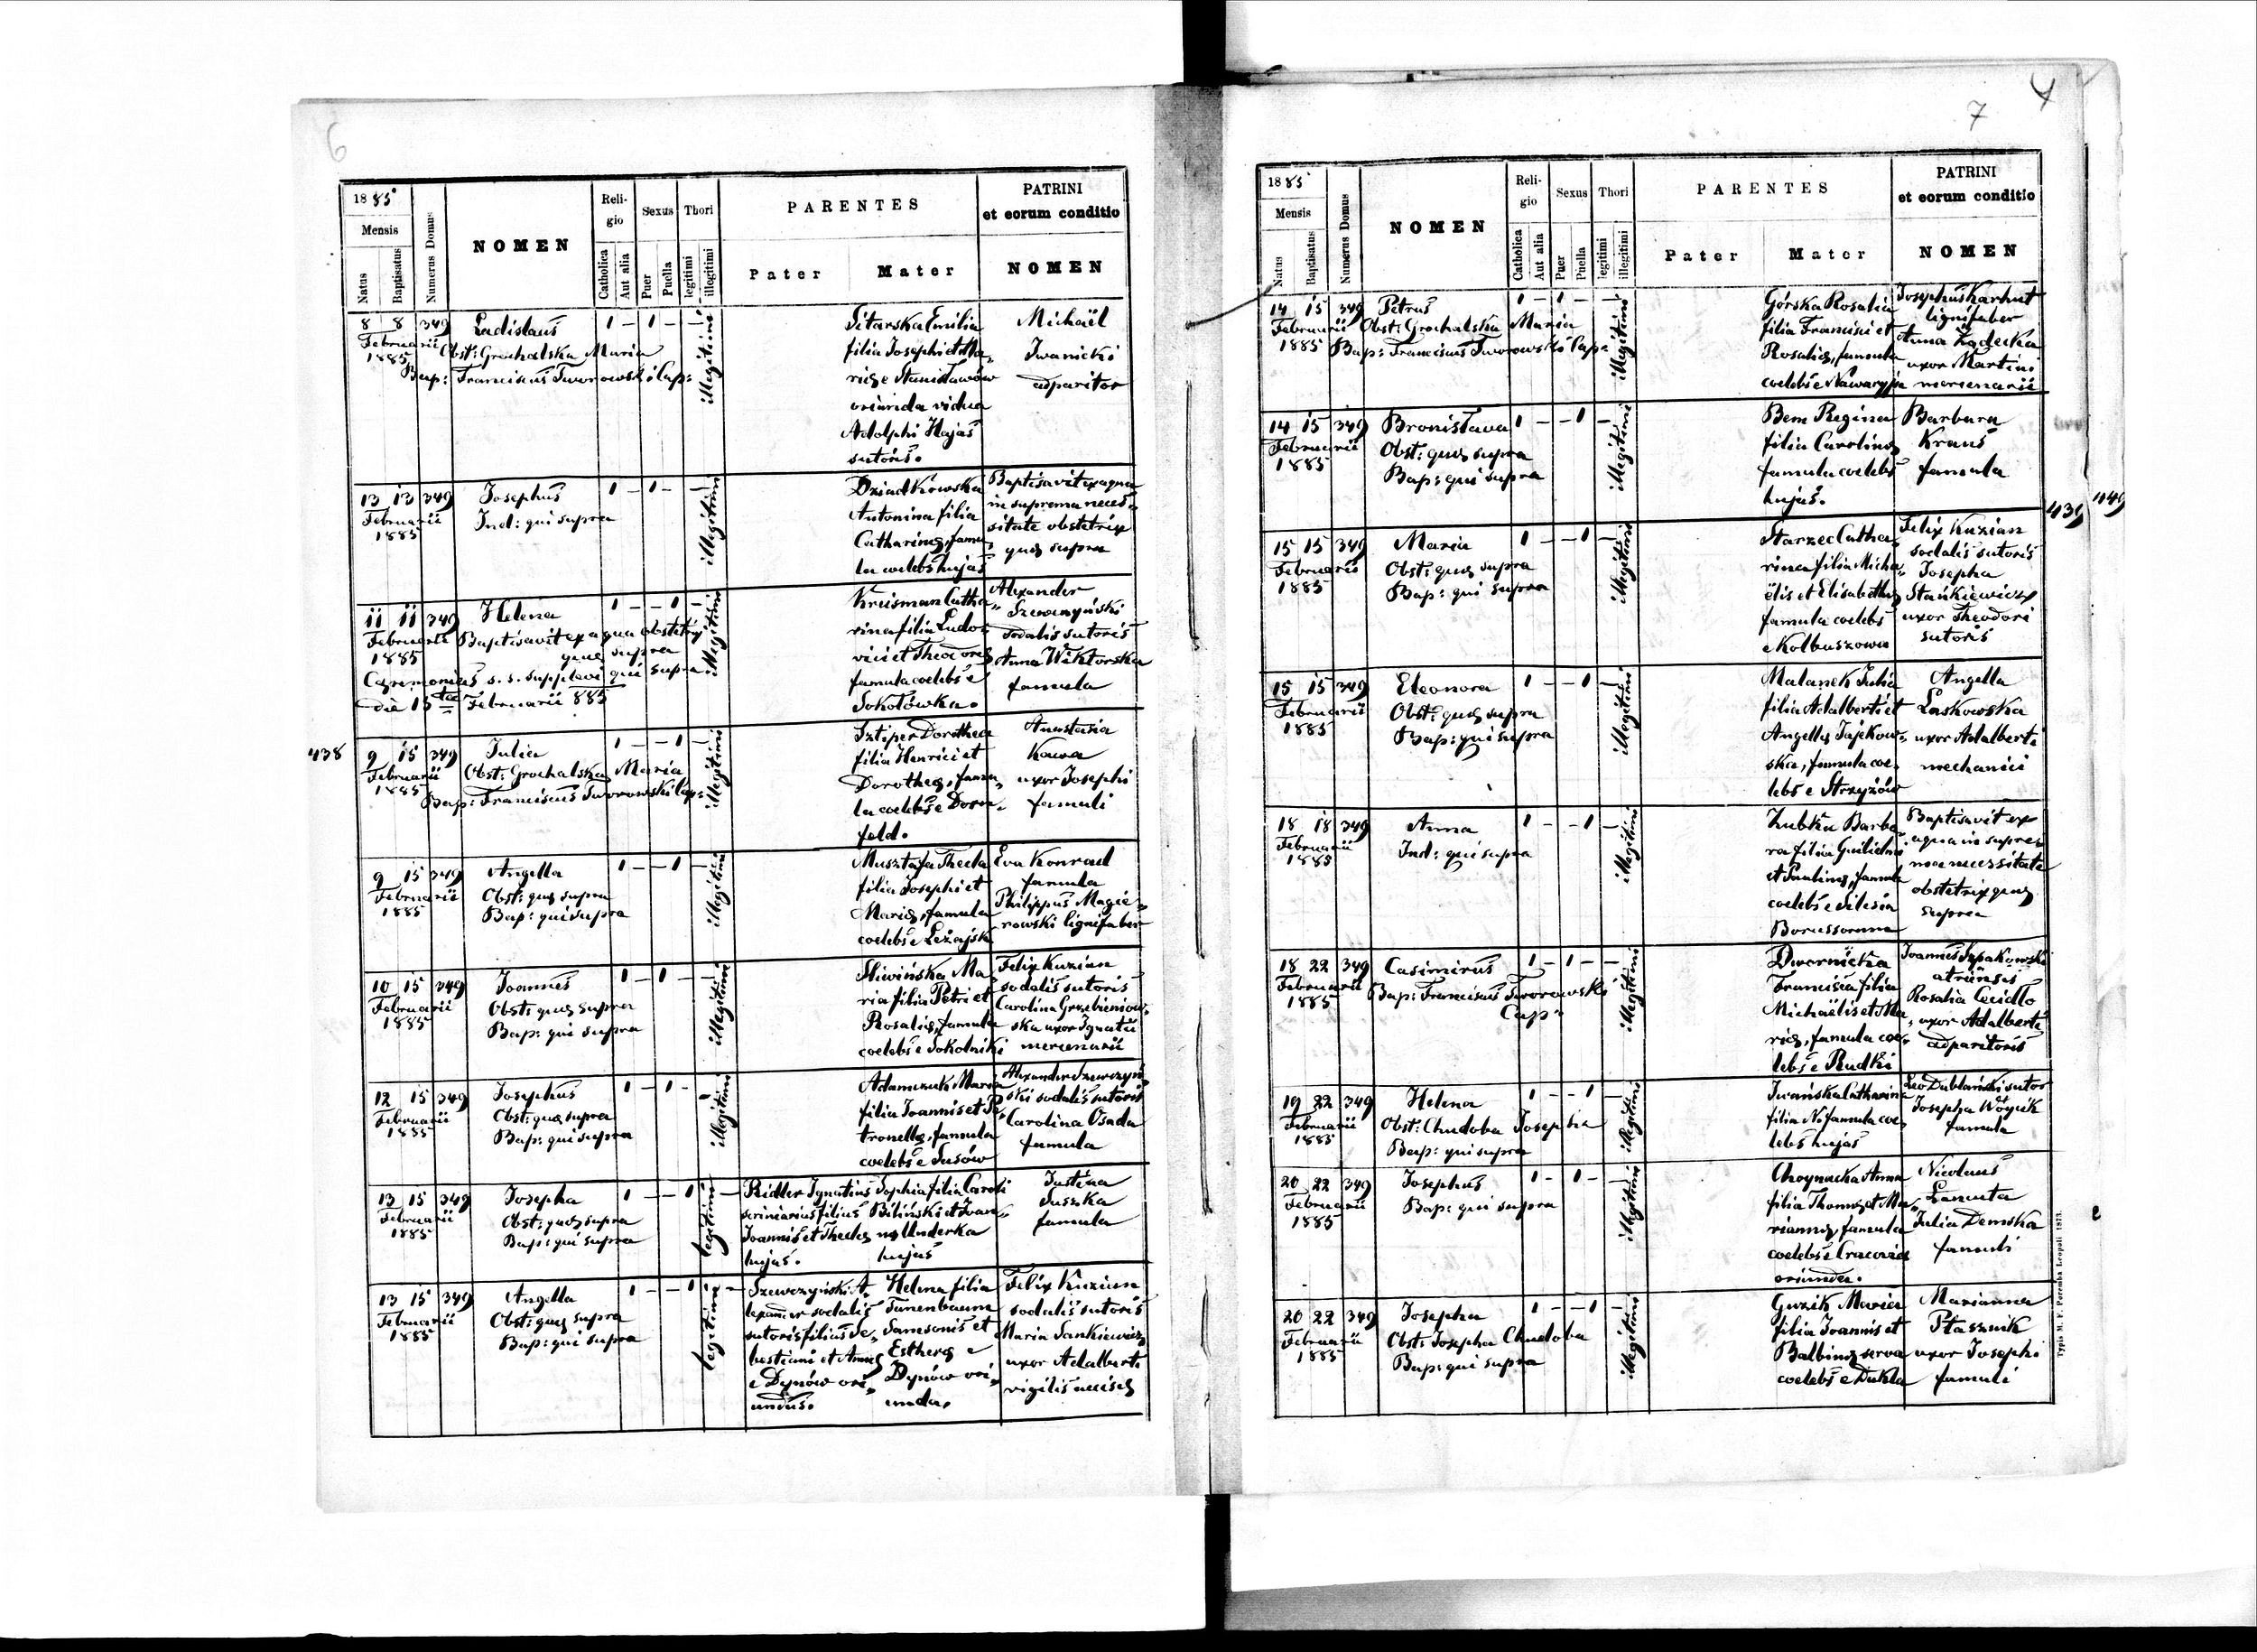 6
1885
Mensis
Natus
Baptisatus
Numerus Domus
NOMEN
Reli-
gio
Catholica
Aut alia
Sexus
Puer
Puella
Thori
legitimi
illegitimi
PARENTES
Pater
Mater
PATRINI
et eorum conditio
NOMEN
8 8 349 Ladislaus 1 – 1 – –
Februarii
1885
Obst: Grochalska Maria
Bap: Franciscus Tworowski Cap:
illegitimi
Sitarska Emilia
filia Josephi et Ma„
riæ e Stanisławów
oriunda vidua
Adolphi Hajas
sutoris.
Michaël
Iwanicki
adparitor
13 13 349 Josephus 1 – 1 – –
Februarii
1885
Ind: qui supra
illegitimi
Dziadkowska
Antonina filia
Catharinæ, famu„
la coelebs hujas
Baptisavit ex aqua
in suprema neces„
sitate obstetrix
quæ supra
11 11 349 Helena 1 – – 1 –
Februarii
1885
Baptisavit ex aqua obstetrix
quæ supra
Cæremonias s. s. supplevi qui supra
die 15 tea Februarii 885
illegitimi
Kreisman Catha„
rina filia Ludo„
vici et Theodoræ
famula coelebs e
Sokołówka.
Alexander
Szewczyński
sodalis sutoris
Anna Wiktorska
famula
438
9 15 349 Julia 1 – – 1 –
Februarii
1885
Obst: Grochalska Maria
Bap: Franciscus Tworowski Cap:
illegitimi
Sztiper Dorothea
filia Henrici et
Dorotheæ, famu„
la coelebs e Dorn„
feld.
Anastasia
Kawa
uxor Josephi
famuli
9 15 349 Angella 1 – – 1 –
Februarii
1885
Obst: quæ supra
Bap: qui supra
illegitimi
Musztafa Thecla
filia Josephi et
Mariæ, famula
coelebs e Leżajsk
Eva Konrad
famula
Philippus Magie„
rowski lignifaber
10 15 349 Joannes 1 – 1 – –
Februarii
1885
Obst: quæ supra
Bap: qui supra
illegitimi
Sliwińska Ma„
ria filia Petri et
Rosaliæ, famula
coelebs e Sokolniki
Felix Kuzian
sodalis sutoris
Carolina Grzebieniow„
ska uxor Ignatii
mercenarii
12 15 349 Josephus 1 – 1 – –
Februarii
1885
Obst: quæ supra
Bap: qui supra
illegitimi
Adamczuk Maria
filia Joannis et Pe„
tronellæ, famula
coelebs e Susów
Alexander Szewczyń„
ski sodalis sutoris
Carolina Osada
famula
13 15 349 Josepha 1 – – 1 –
Februarii
1885
Obst: quæ supra
Bap: qui supra
legitimi
Reidler Ignatius
scriniarius filius
Joannis et Theclæ
hujas.
Sophia filia Caroli
Biliński et Joan„
næ Underka
hujas
Justina
Suszka
famula
13 15 349 Angella 1 – – 1 –
Februarii
1885
Obst: quæ supra
Bap: qui supra
legitimi
Szewczyński A„
lexander sodalis
sutoris filius Se„
bastiani et Annæ
e Dynów ori„
undus.
Helena filia
Tanenbaum
Samsonis et
Estheræ e
Dynów ori„
unda.
Felix Kuzian
sodalis sutoris
Maria Sankiewicz
uxor Adalberti
vigilis accisæ
7
1885
Mensis
Natus
Baptisatus
Numerus Domus
NOMEN
Reli-
gio
Catholica
Aut alia
Sexus
Puer
Puella
Thori
legitimi
illegitimi
PARENTES
Pater
Mater
PATRINI
et eorum conditio
NOMEN
14 15 349 Petrus 1 – 1 – –
Februarii
1885
Obst: Grochalska Maria
Bap: Franciscus Tworowski Cap:
illegitimi
Górska Rosalia
filia Francisci et
Rosaliæ, famula
coelebs e Nawaryja
Josephus Karhut
lignifaber
Anna Łądecka
uxor Martini
mercenarii
14 15 349 Bronisława 1 – – 1 –
Februarii
1885
Obst: quæ supra
Bap: qui supra
illegitimi
Bem Regina
filia Carolinæ
famula coelebs
hujas.
Barbara
Kraus
famula
439 449
15 15 349 Maria 1 – – 1 –
Februarii
1885
Obst: quæ supra
Bap: qui supra
illegitimi
Starzec Catha„
rina filia Micha„
ëlis et Elisabethæ
famula coelebs
e Kolbuszowa
Felix Kuzian
sodalis sutoris
Josepha
Stankiewicz
uxor Theodori
sutoris
15 15 349 Eleonora 1 – – 1 –
Februarii
1885
Obst: quæ supra
Bap: qui supra
illegitimi
Malanek Julia
filia Adalberti et
Angellæ Jajkow„
ska, famula coe„
lebs e Strzyżów
Angella
Laskowska
uxor Adalberti
mechanici
18 18 349 Anna 1 – – 1 –
Februarii
1885
Ind: qui supra
illegitimi
Zubka Barba„
ra filia Guilielmi
et Paulinæ, famula
coelebs e Silesia
Borussorum
Baptisavit ex
aqua in supre„
ma necessitate
obstetrix quæ
supra
18 22 349 Casimirus 1 – 1 – –
Februarii
1885
Bap: Franciscus Tworowski
Cap:
illegitimi
Dwornicka
Francisca filia
Michaëlis et Ma„
riæ, famula coe„
lebs e Rudki
Joannes Szpakowski
atriensis
Rosalia Ceidło
uxor Adalberti
adparitoris
19 22 349 Helena 1 – – 1 –
Februarii
1885
Obst: Chudoba Josepha
Bap: qui supra
illegitimi
Iwańska Catharina
filia N. famula coe„
lebs hujas
Leo Dublański sutor
Josepha Wóycik
famula
20 22 349 Josephus 1 – 1 – –
Februarii
1885
Bap: qui supra
illegitimi
Choynacka Anna
filia Thomæ et Ma„
riannæ, famula
coelebs e Cracovia
oriunda.
Nicolaus
Lamuta
Julia Demska
famuli
20 22 349 Josepha 1 – – 1 –
Februarii
1885
Obst: Josepha Chudoba
Bap: qui supra
illegitimi
Guzik Maria
filia Joannis et
Balbinæ serva
coelebs e Dukla
Marianna
Ptasznik
uxor Josephi
famuli
Typis M. F. Poremba Leopoli 1873.